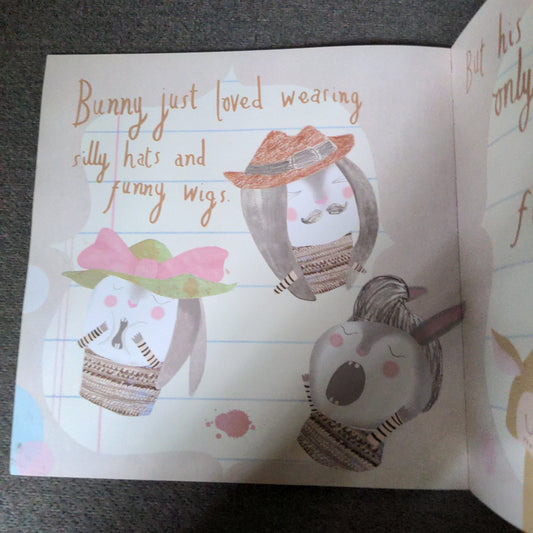 Bunny just loved wearing
silly hats and
funny wigs.
But his
only
f